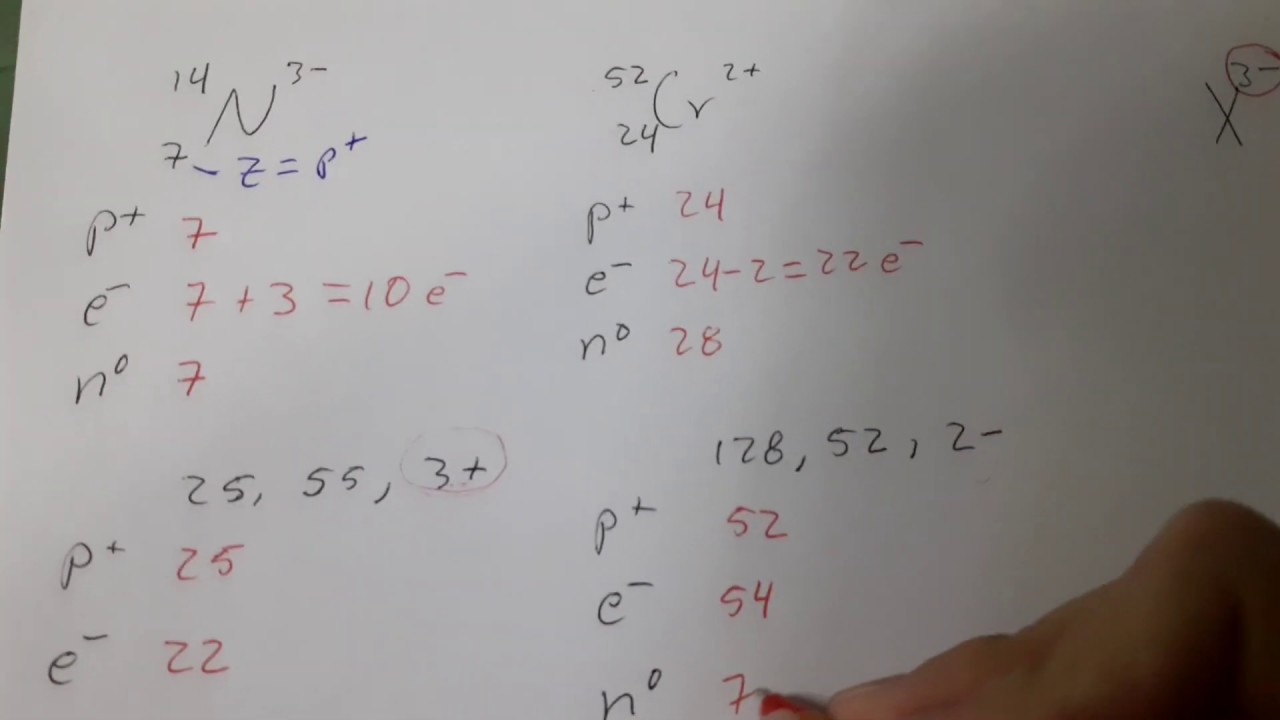 14 N 3-
7 - Z = p+
p+ 7
e- 7 + 3 = 10 e-
n0 7
52 Cr 2+
24
p+ 24
e- 24-2=22 e-
n0 28
X 3-
25, 55, 3+
p+ 25
e- 22
128, 52, 2-
p+ 52
e- 54
n0 7